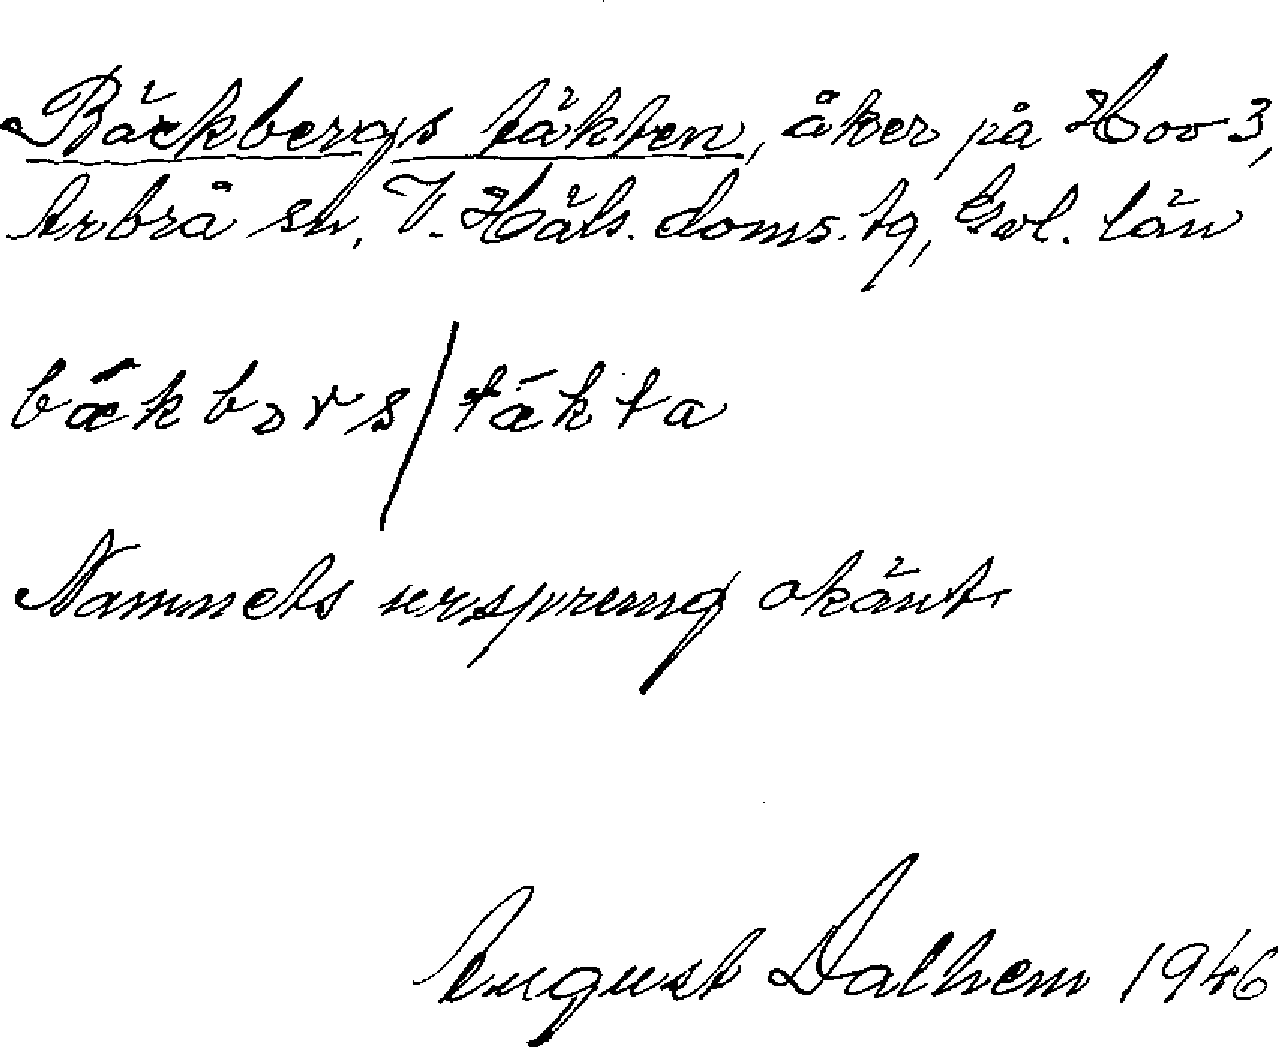 Bäckbergs täkten, åker på Hov 3,
Arbrå sn. V. Häls. doms. tg, Gvl. län
bǽkbɔrs/tǽkta
Namnets ursprung okänt.
August Dalhem 1946